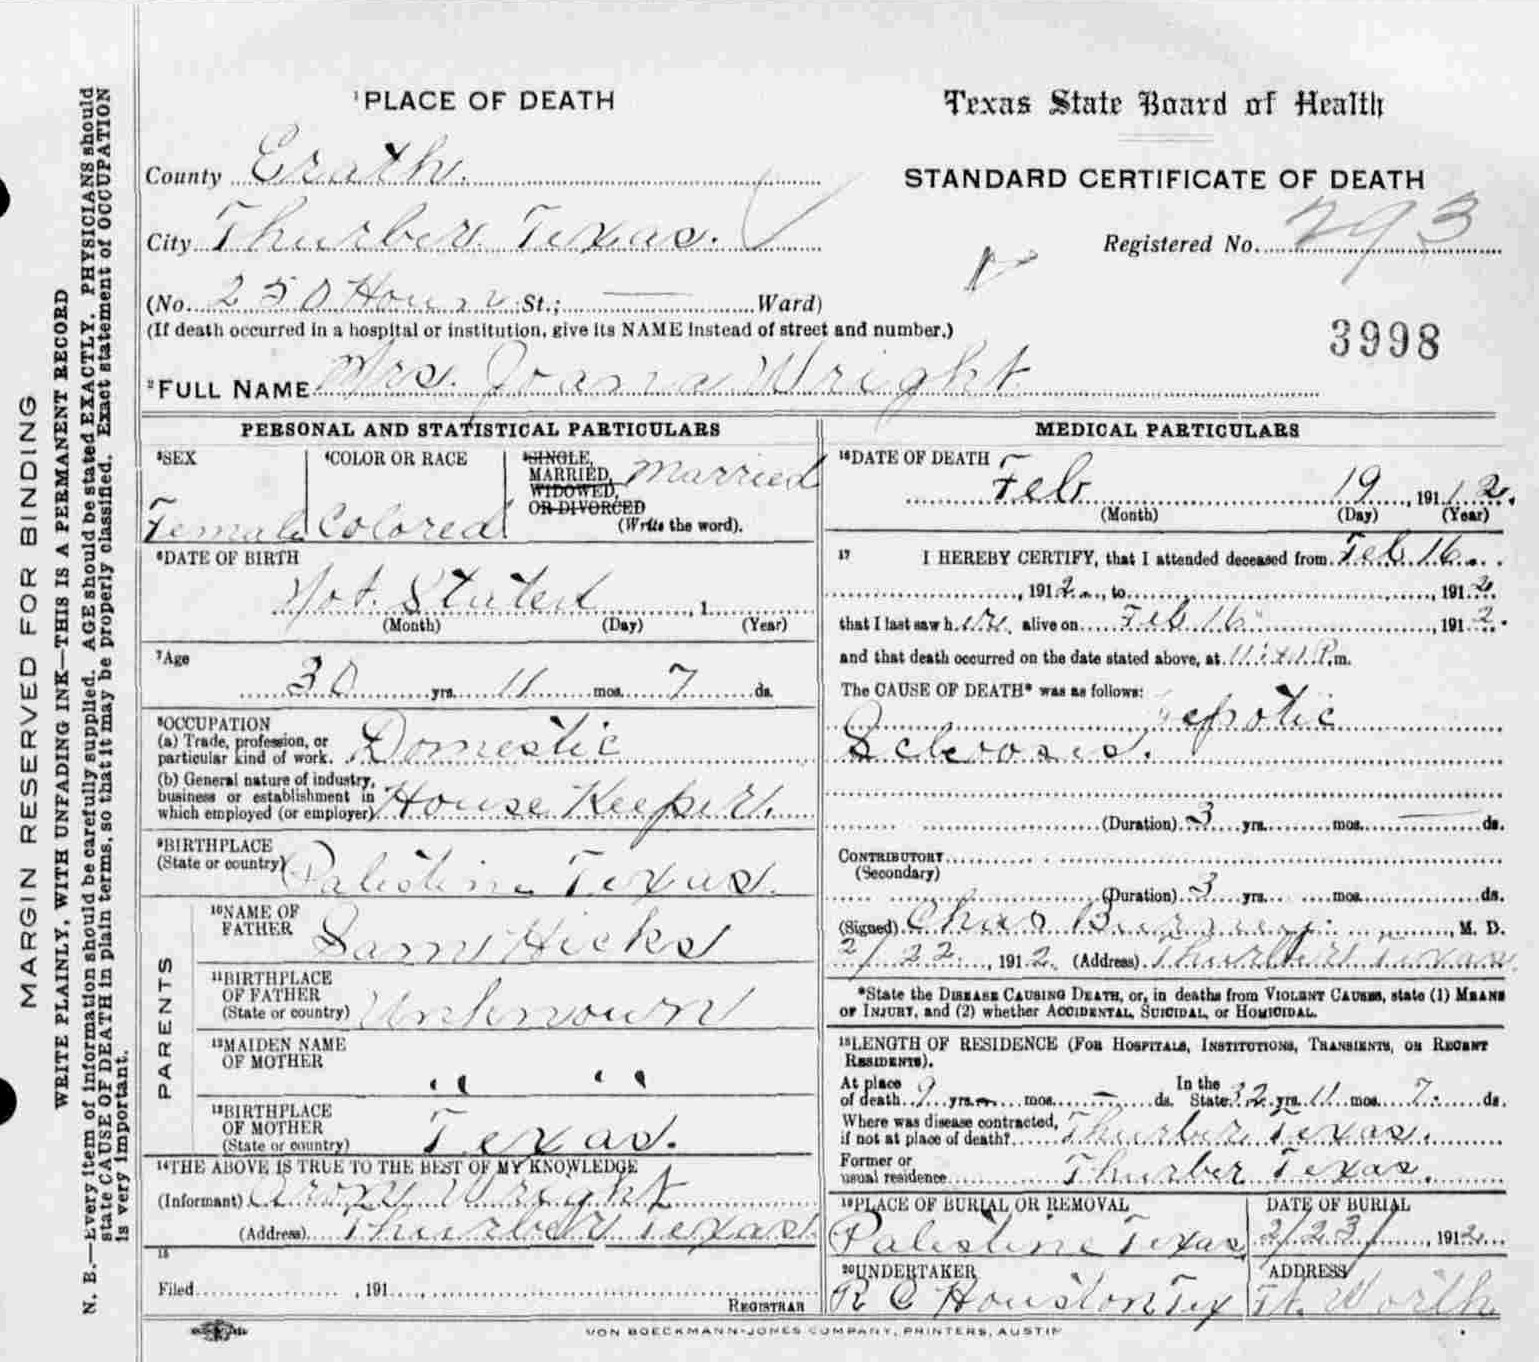 MARGIN RESERVED FOR BINDING
WRITE PLAINLY, WITH UNFADING INK—THIS IS A PERMANENT RECORD
N. B.—Every item of information should be carefully supplied. AGE should be stated EXACTLY. PHYSICIANS should
state CAUSE OF DEATH in plain terms, so that it may be properly classified. Exact statement of OCCUPATION
is very important.
1 PLACE OF DEATH
Texas State Board of Health
STANDARD CERTIFICATE OF DEATH
County Erath.
City Thurber Texas.
Registered No. 293
(No. 250 St.; — Ward)
(If death occurred in a hospital or institution, give its NAME instead of street and number.)
3998
2 FULL NAME Mrs. Joana Wright
PERSONAL AND STATISTICAL PARTICULARS
3 SEX Female
4 COLOR OR RACE Colored
5 SINGLE,
MARRIED, Married
WIDOWED,
OR DIVORCED
(Write the word).
6 DATE OF BIRTH
Not Stated , 1
(Month) (Day) (Year)
7 Age
30 yrs. 11 mos. 7 ds.
8 OCCUPATION
(a) Trade, profession, or
particular kind of work. Domestic
(b) General nature of industry,
business or establishment in
which employed (or employer) House Keeper.
9 BIRTHPLACE
(State or country) Palestine Texas.
PARENTS
10 NAME OF
FATHER Sam Hicks
11 BIRTHPLACE
OF FATHER
(State or country) Unknown
12 MAIDEN NAME
OF MOTHER " "
13 BIRTHPLACE
OF MOTHER
(State or country) Texas.
14 THE ABOVE IS TRUE TO THE BEST OF MY KNOWLEDGE
(Informant) Wright
(Address) Thurber Texas
15
Filed , 191
REGISTRAR
MEDICAL PARTICULARS
16 DATE OF DEATH
Feb 19 , 1912.
(Month) (Day) (Year)
17 I HEREBY CERTIFY, that I attended deceased from Feb 16
, 1912, to , 1912
that I last saw her alive on Feb 16 1912.
and that death occurred on the date stated above, at P.m.
The CAUSE OF DEATH* was as follows:
Sclerosis.
(Duration) 3 yrs. mos. — ds.
CONTRIBUTORY
(Secondary)
(Duration) 3 yrs. mos. ds.
(Signed) Chas , M. D.
2/22 , 1912. (Address) Thurber Texas
*State the DISEASE CAUSING DEATH, or, in deaths from VIOLENT CAUSES, state (1) MEANS
OF INJURY, and (2) whether ACCIDENTAL, SUICIDAL, or HOMICIDAL.
18 LENGTH OF RESIDENCE (FOR HOSPITALS, INSTITUTIONS, TRANSIENTS, OR RECENT
RESIDENTS).
At place of death 9 yrs. mos. — ds. In the State 32 yrs. 11 mos. 7 ds.
Where was disease contracted,
if not at place of death? Thurber Texas.
Former or
usual residence Thurber Texas.
19 PLACE OF BURIAL OR REMOVAL
Palestine Texas
DATE OF BURIAL
2/23/ , 1912
20 UNDERTAKER
R C Houston Tex
ADDRESS
Ft. Worth
VON BOECKMANN-JONES COMPANY, PRINTERS, AUSTIN